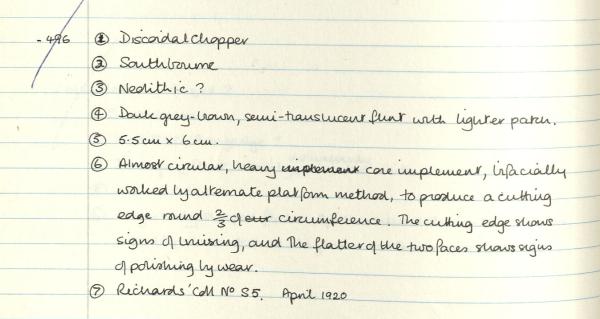 - 496 ① Discoidal Chopper
② Southbourne
③ Neolithic ?
④ Dark grey-brown, semi-translucent flint with lighter patch.
⑤ 5.5cm x 6cm.
⑥ Almost circular, heavy implement core implement, bifacially
worked by alternate platform method, to produce a cutting
edge round 2/3 of our circumference. The cutting edge shows
signs of bruising, and the flatter of the two faces shows signs
of polishing by wear.
⑦ Richards' Coll No S5. April 1920